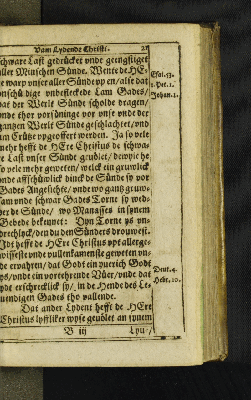 Vam Lydende Christi. 21
schware Last gedrücket vnde geengstiget
aller Minschen Sünde. Wente de HE-
re warp vnser aller Sünde vp en / alse dat
vnschüldige vnbefleckede Lam Gades /
dat der Werlt Sünde scholde dragen /
vnde thor vorsöninge vor vnse vnde der
gantzen Werlt Sünde geschlachtet / vnd
am Crütze vpgeoffert werden. Ja so vele
mehr hefft de HEre Christus de schwa-
re Last vnser Sünde gevölet / dewyle he
so vele mehr geweten / welck ein gruwlick
vnde affschüwlick dinck de Sünde sy vor
Gades Angesichte / vnde wo gantz gruw-
sam vnde schwar Gades Torne sy wed-
der de Sünde / wo Manasses in synem
Gebede bekennet: Dyn Torne ys un-
drechlyck / den du den Sünders drouwest.
Idt hefft de HEre Christus vpt allerge-
wisseste vnde vullenkameste geweten vn-
de ervahren / dat Godt ein yverich Godt
ys / vnde ein vorterende Vüer / vnde dat
ydt erschrecklick sy / in de Hende des Le-
uendigen Gades tho vallende.
Dat ander Lydent hefft de HEre
Christus lyffliker wyse geüldet an synem
B iij Lyu-/
Esai. 53.
1. Pet. 1.
Johan. 1.
Deut. 4.
Hebr. 10.